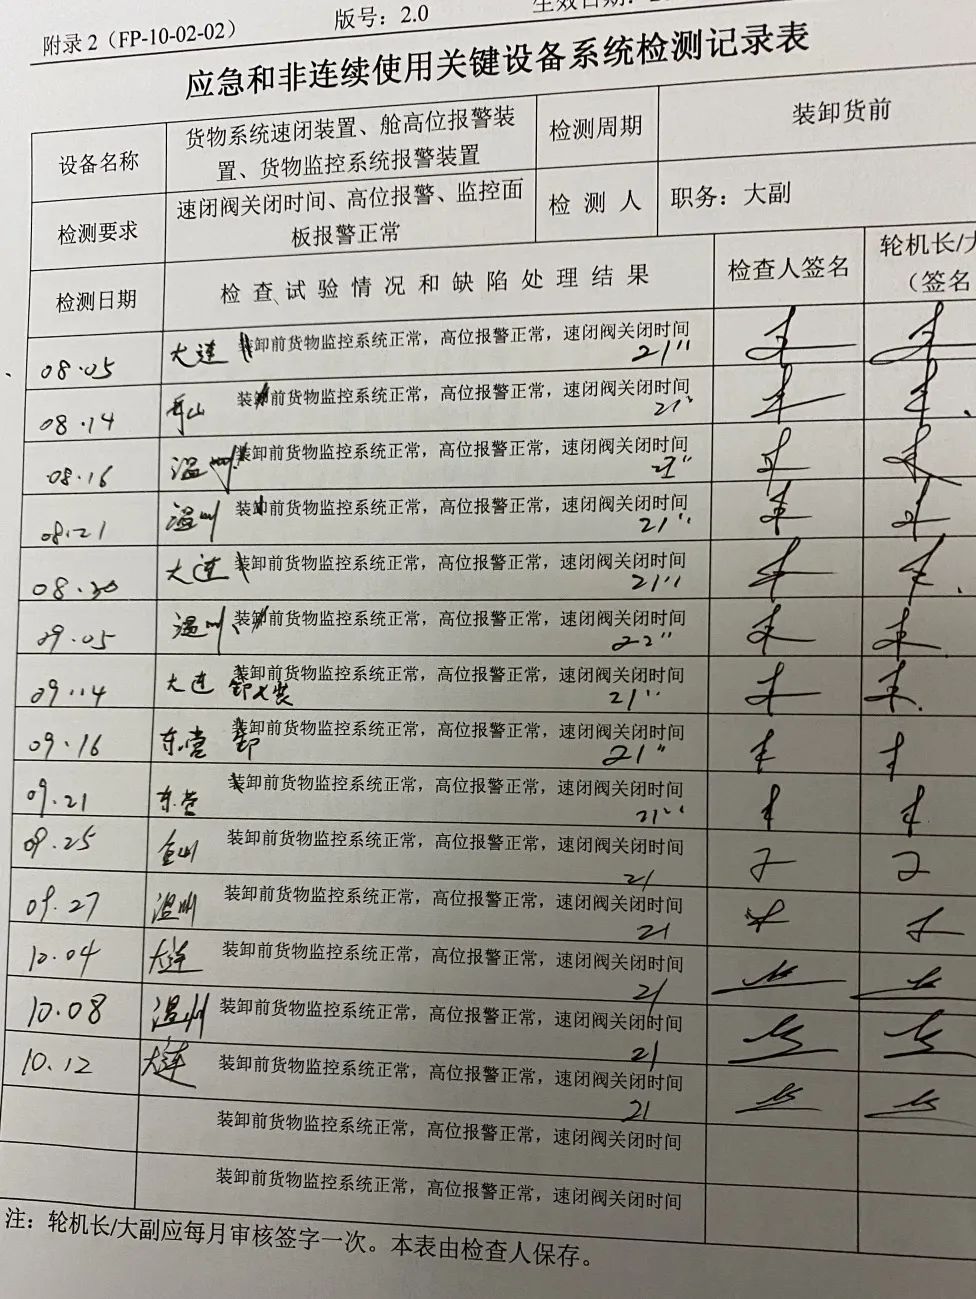 附录 2（FP-10-02-02）
版号：2.0
生效日期：
应急和非连续使用关键设备系统检测记录表
设备名称
货物系统速闭装置、舱高位报警装
置、货物监控系统报警装置
检测周期
装卸货前
检测要求
速闭阀关闭时间、高位报警、监控面
板报警正常
检 测 人
职务：大副
检测日期
检 查 试 验 情 况 和 缺 陷 处 理 结 果
检查人签名
轮机长/大
（签名
08.05
大连
装卸前货物监控系统正常，高位报警正常，速闭阀关闭时间
21''
08.14
舟山
装卸前货物监控系统正常，高位报警正常，速闭阀关闭时间
21''
08.16
温州
装卸前货物监控系统正常，高位报警正常，速闭阀关闭时间
08.21
温州
装卸前货物监控系统正常，高位报警正常，速闭阀关闭时间
21''
08.30
大连
装卸前货物监控系统正常，高位报警正常，速闭阀关闭时间
21''
09.05
温州
装卸前货物监控系统正常，高位报警正常，速闭阀关闭时间
22''
09.14
大连
装卸前货物监控系统正常，高位报警正常，速闭阀关闭时间
21''
09.16
东营 卸
装卸前货物监控系统正常，高位报警正常，速闭阀关闭时间
21''
09.21
东营
装卸前货物监控系统正常，高位报警正常，速闭阀关闭时间
21''
09.25
金山
装卸前货物监控系统正常，高位报警正常，速闭阀关闭时间
21
09.27
温州
装卸前货物监控系统正常，高位报警正常，速闭阀关闭时间
21
10.04
大连
装卸前货物监控系统正常，高位报警正常，速闭阀关闭时间
21
10.08
温州
装卸前货物监控系统正常，高位报警正常，速闭阀关闭时间
21
10.12
大连
装卸前货物监控系统正常，高位报警正常，速闭阀关闭时间
21
装卸前货物监控系统正常，高位报警正常，速闭阀关闭时间
装卸前货物监控系统正常，高位报警正常，速闭阀关闭时间
注：轮机长/大副应每月审核签字一次。本表由检查人保存。